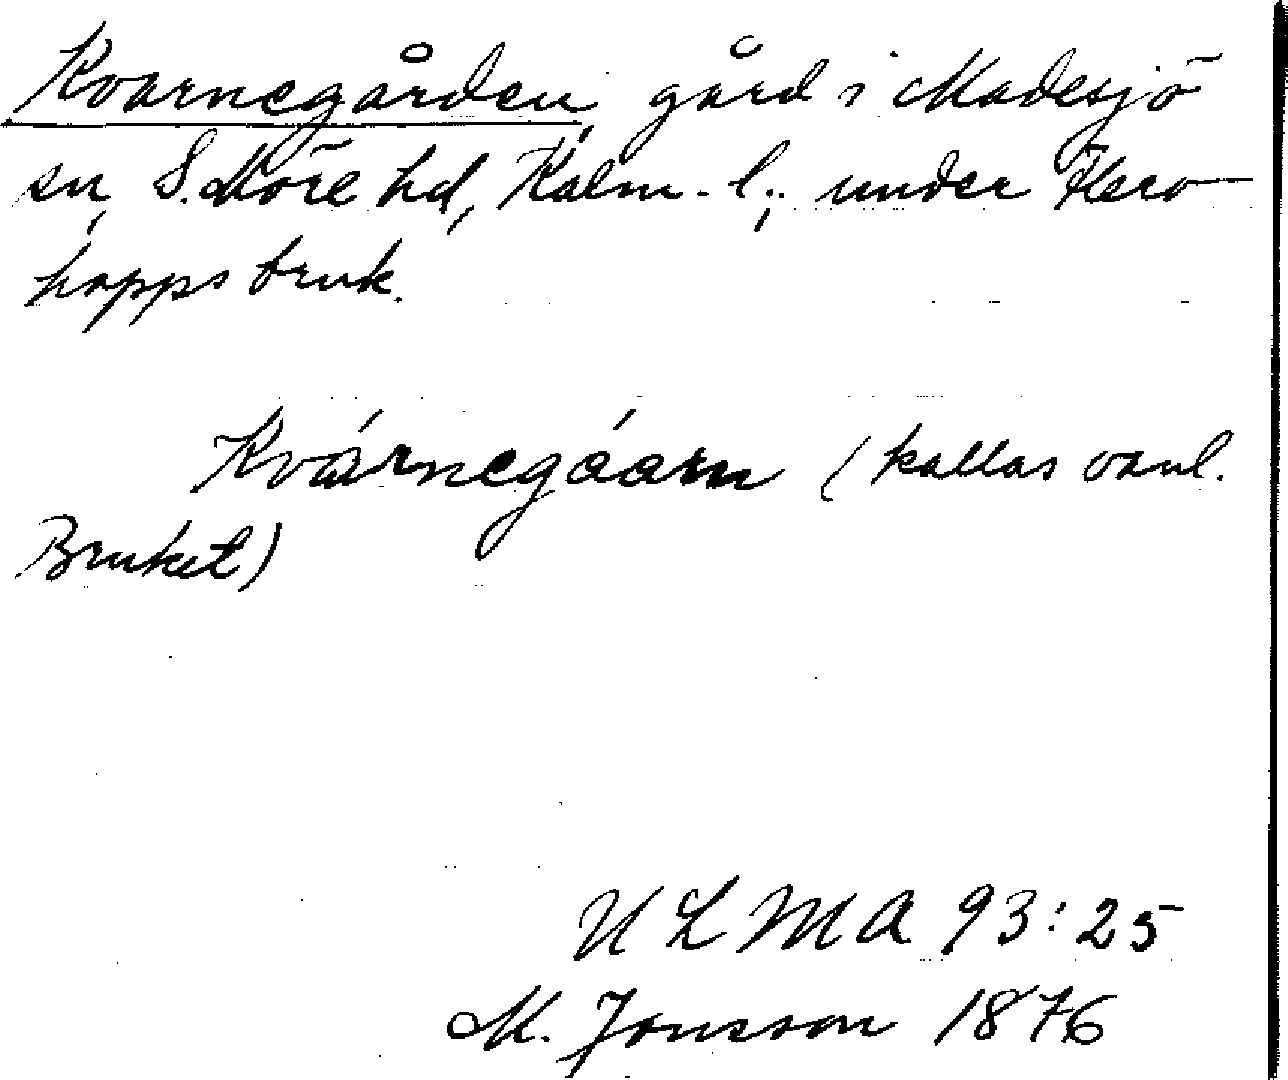 Kvarnegården, gård i Madesjö
sn, S. Möre hd, Kalm. l.; under Flero-
hopps bruk.
Kvárnegáarn (kallas vanl.
Bruket)
ULMA 93:25
M. Jonsson 1876